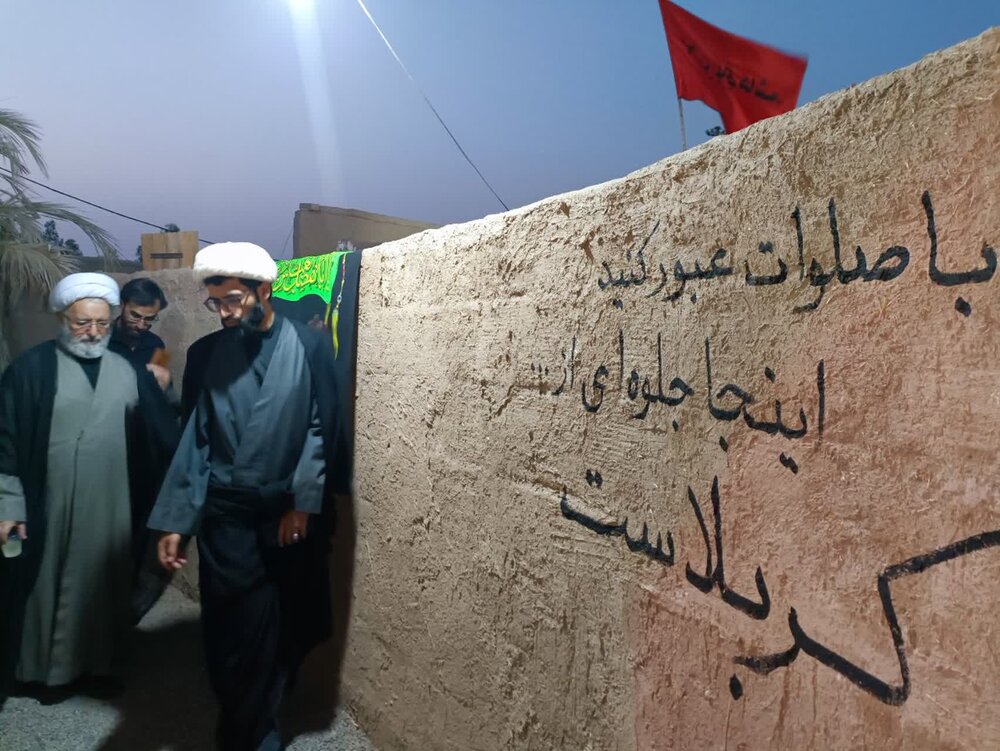 با صلوات عبور کنید
اینجا جلوه ای از...
کربلاست